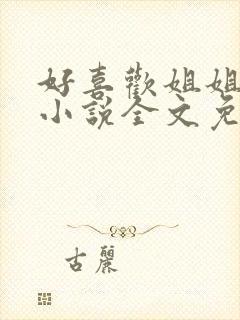 好喜歡姐姐
小說全文免
古麗